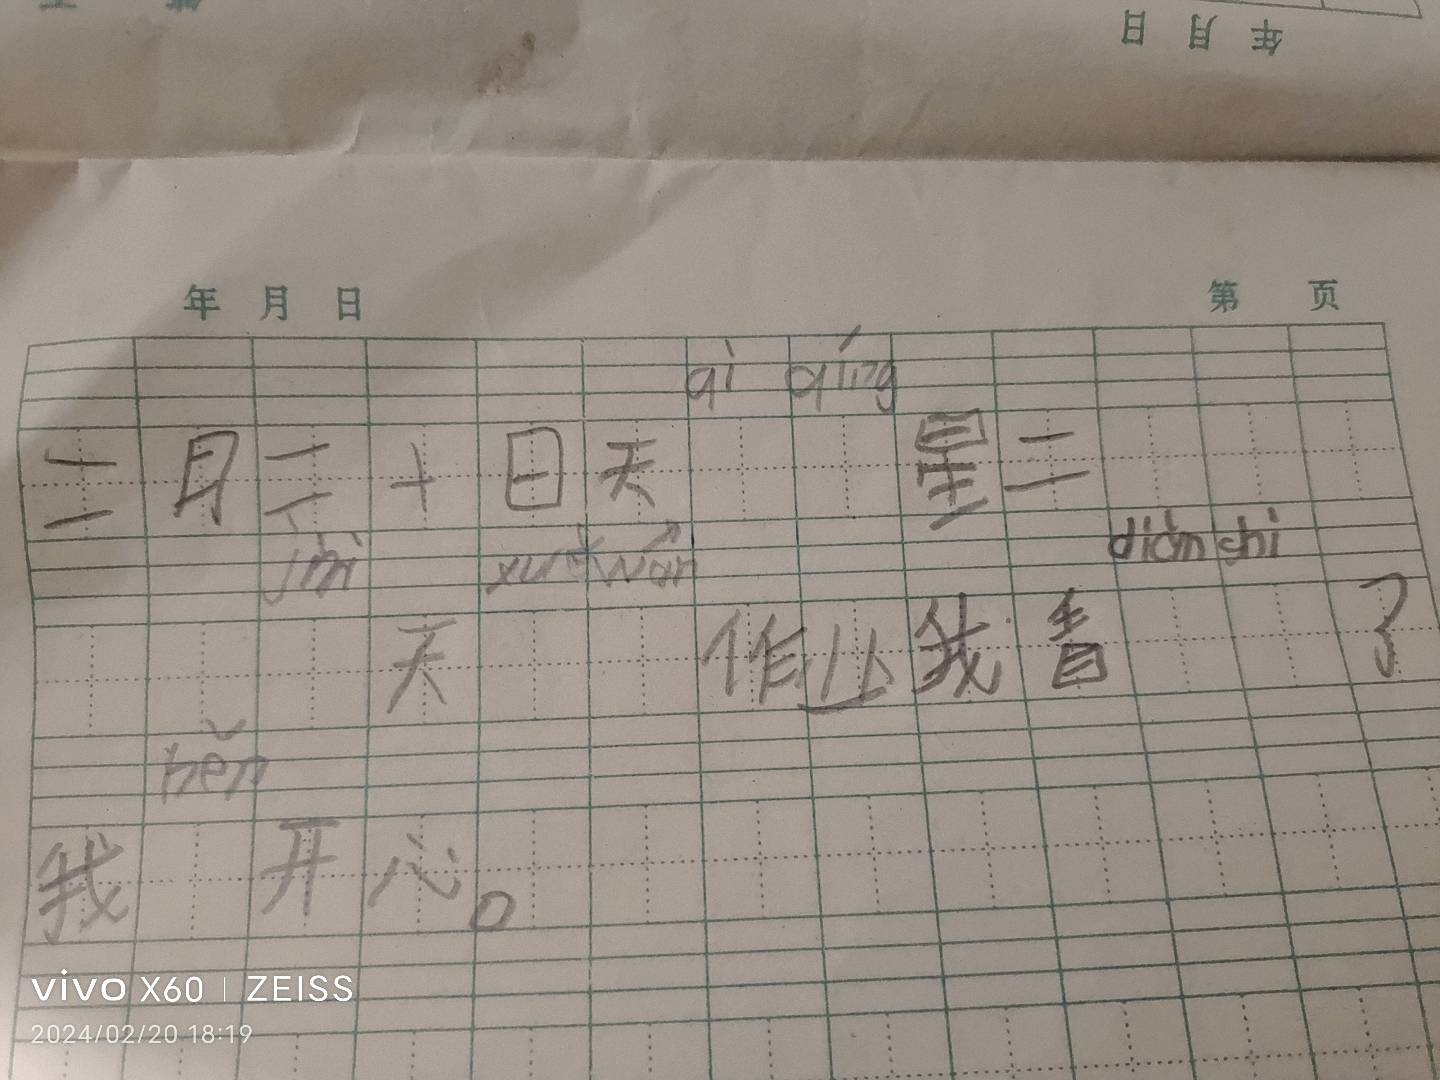 日 月 年
年 月 日 第 页
qì qíng
二月二十日天 星二
diàn shì
天 作业我看 了
hěn
我 开心。
vivo X60 | ZEISS
2024/02/20 18:19